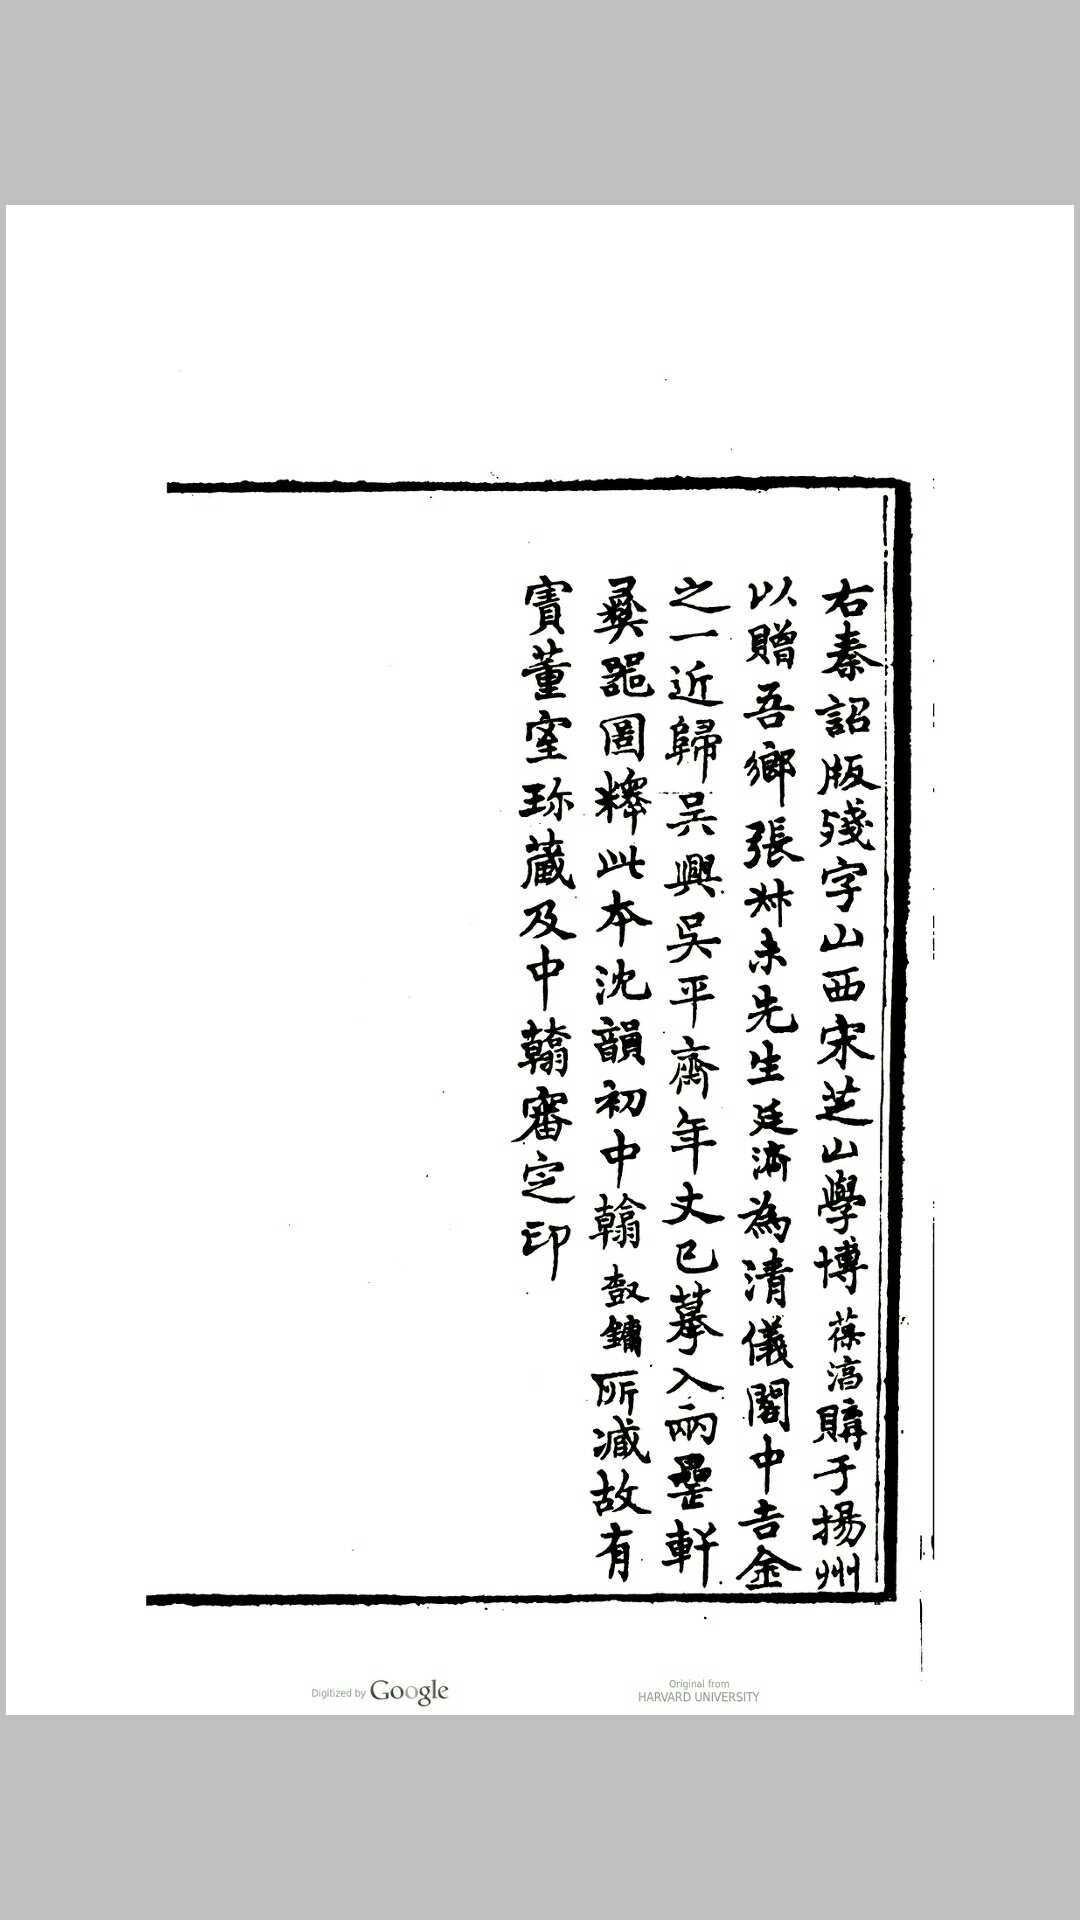 右秦詔版殘字山西宋芝山學博葆淳購于揚州
以贈吾鄉張尗未先生廷濟為清儀閣中吉金
之一近歸吳興吳平齋年丈已摹入兩罍軒
彝器圖釋此本沈韻初中翰樹鏞所藏故有
寶董室珍藏及中翰審定印
Digitized by Google
Original from
HARVARD UNIVERSITY